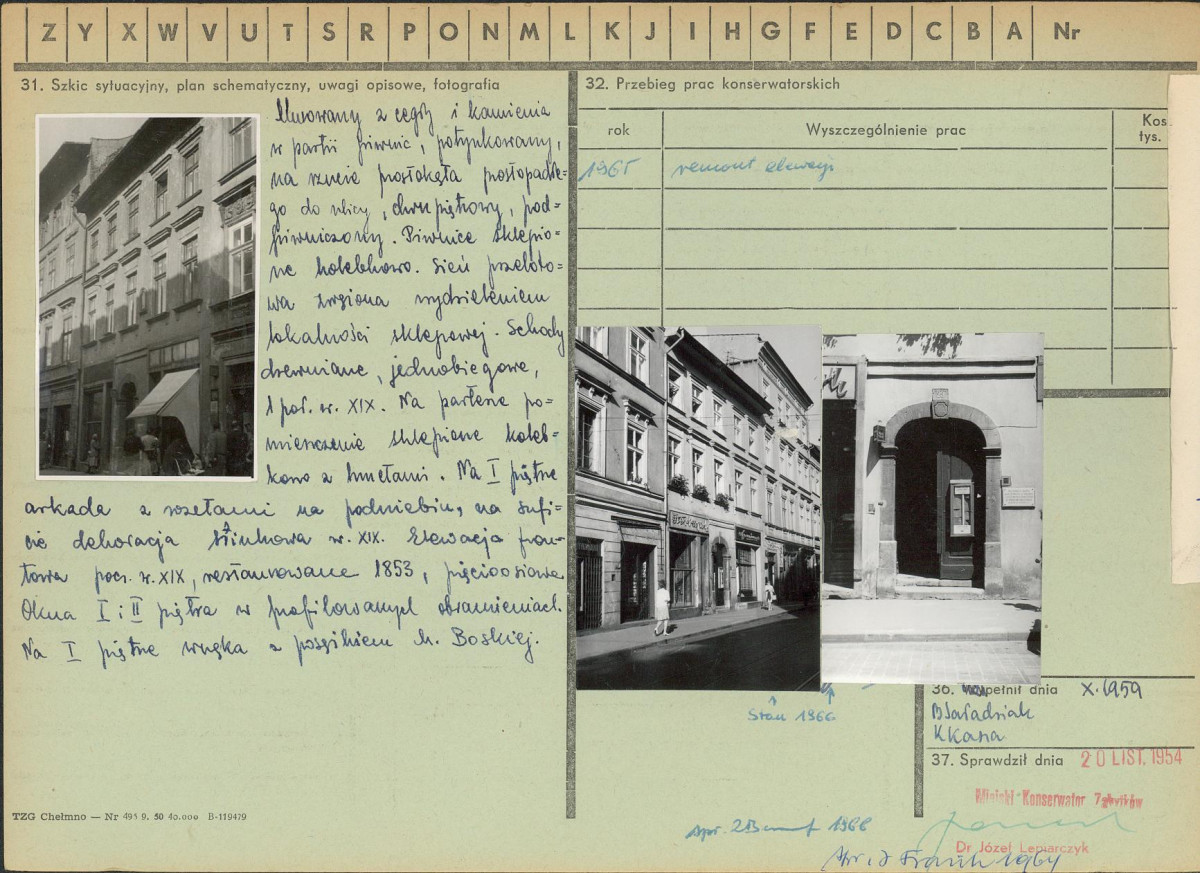 Z Y X W V U T S R P O N M L K J I H G F E D C B A Nr
31. Szkic sytuacyjny, plan schematyczny, uwagi opisowe, fotografia
Murowany z cegły i kamienia
w partii piwnic, potynkowany,
na rzucie prostokąta prostopadłe-
go do ulicy, dwupiętrowy, pod-
piwniczony. Piwnice sklepio-
ne kolebkowo. Sień przeloto-
wa zwężona wydzieleniem
lokalności sklepowej. Schody
drewniane, jednobiegowe,
1 poł. w. XIX. Na parterze po-
mieszczenie sklepione koleb-
kowo z lunetami. Na I piętrze
arkada z rozetami na podniebiu, na sufi-
cie dekoracja stiukowa w. XIX. Elewacja fron-
towa pocz. w. XIX, restaurowana 1853, pięcioosiowa
Okna I i II piętra w profilowanych obramieniach.
Na I piętrze wnęka z posążkiem M. Boskiej.
TZG Chełmno — Nr 495 9. 50 40.000 B-119479
32. Przebieg prac konserwatorskich
rok Wyszczególnienie prac Kos
tys.
1965 remont elewacji
Stan 1966
36. Wypełnił dnia X.1959
KKasia
37. Sprawdził dnia 20 LIST. 1954
Miejski Konserwator Zabytków
Dr Józef Lepiarczyk
spr. 1966
Spr. 1964